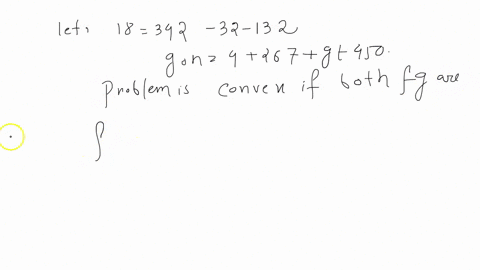 let: 18 = 342 -32-132
gon = 4 + 267 + gt 450.
Problem is convex if both fg are
∫